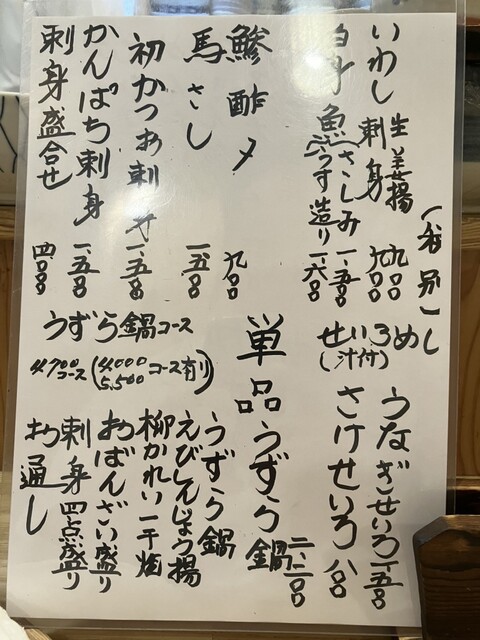 (税別)
いわし生姜揚 九〇〇
刺身 九〇〇
白身魚さしみ 一、五〇〇
うす造り 一、六〇〇
鰺酢〆 九〇〇
馬さし 一、五〇〇
初かつお刺身 一、五〇〇
かんぱち刺身 一、五〇〇
刺身盛合せ 四、〇〇〇
せいろめし
(汁付)
うなぎせいろ 一、五〇〇
さけせいろ 八〇〇
単品うずら鍋 二、二〇〇
うずら鍋コース
4,700コース(4,000 5,500コース有り)
うずら鍋
えびしんじょう揚
柳かれい一干焼
おばんざい盛り
刺身四点盛り
お通し